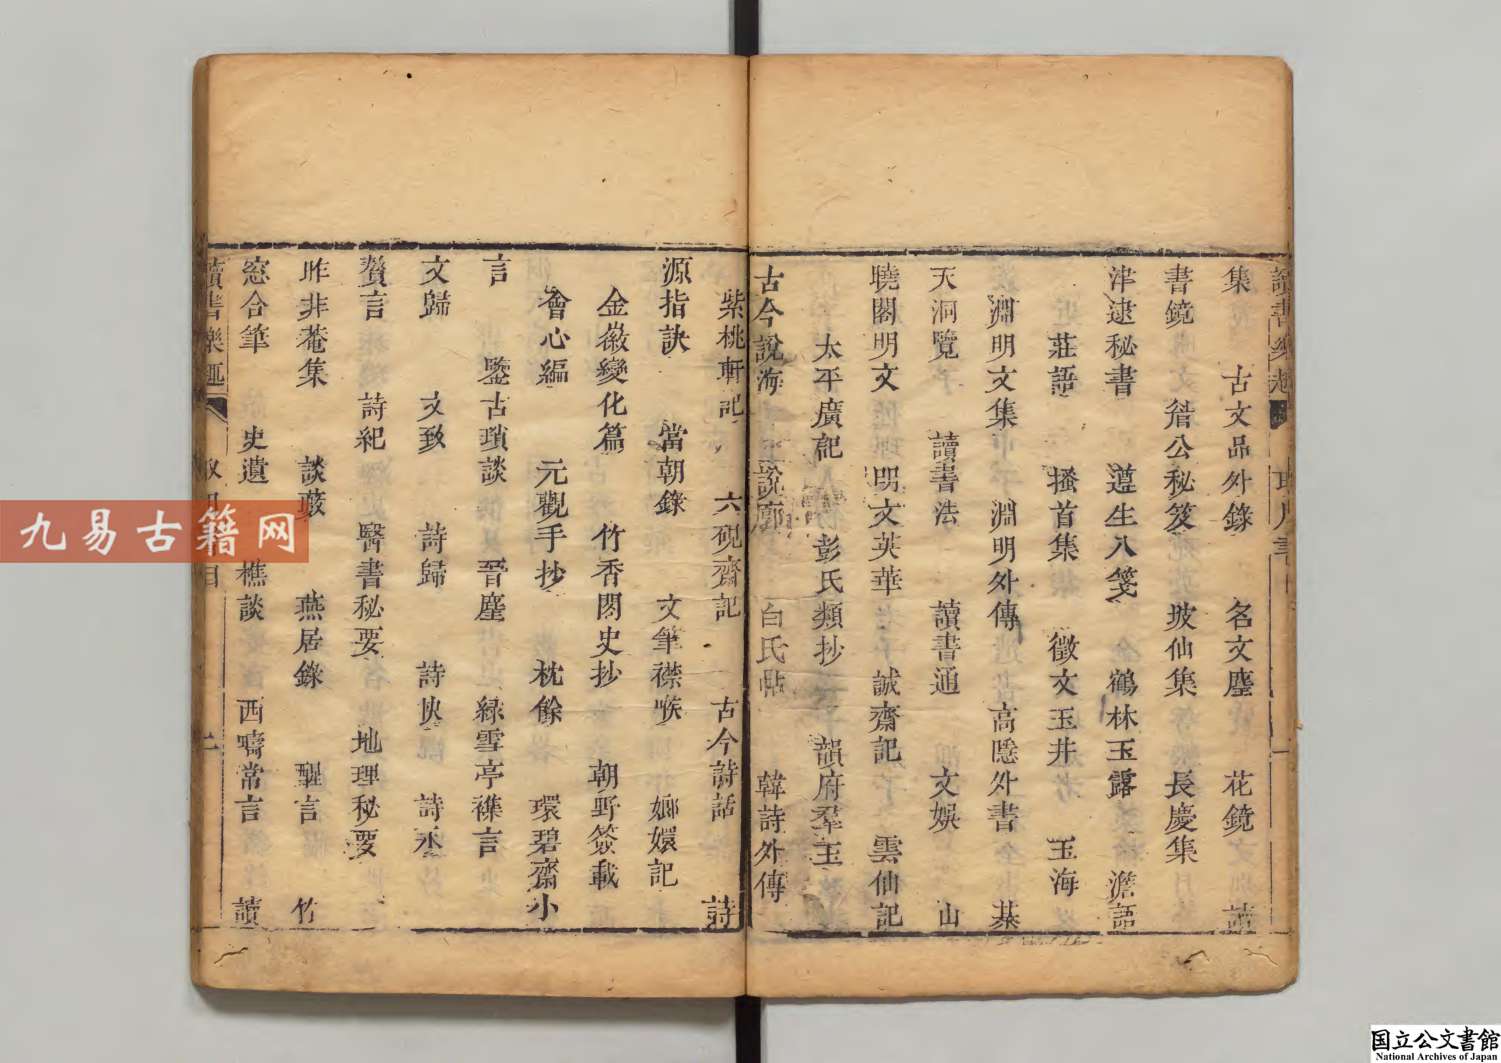 集 古文品外錄 名文麈 花鏡 讀
書鏡 眉公秘笈 坡仙集 長慶集
津逮秘書 遵生八箋 鶴林玉露 澹語
莊語 搔首集 徵文玉井 玉海
淵明文集 淵明外傳 高隱外書 綦
天洞覽 讀書法 讀書通 文娛 山
曉閣明文 明文英華 誠齋記 雲仙記
太平廣記 彭氏類抄 韻府羣玉
古今說海 說郛 白氏帖 韓詩外傳
紫桃軒記 六硯齋記 古今詩話 詩
源指訣 當朝錄 文筆襟喉 嫏嬛記
金薇變化篇 竹香閣史抄 朝野簽載
會心編 元觀手抄 枕餘 環碧齋小
言 鑒古瑣談 晉麈 綠雪亭襍言
文歸 文致 詩歸 詩快 詩丞
贅言 詩紀 醫書秘要 地理秘要
昨非菴集 談藪 燕居錄 醒言 竹
窓合筆 史遺 樵談 西疇常言 讀
讀書樂趣 目
九易古籍网
国立公文書館
National Archives of Japan